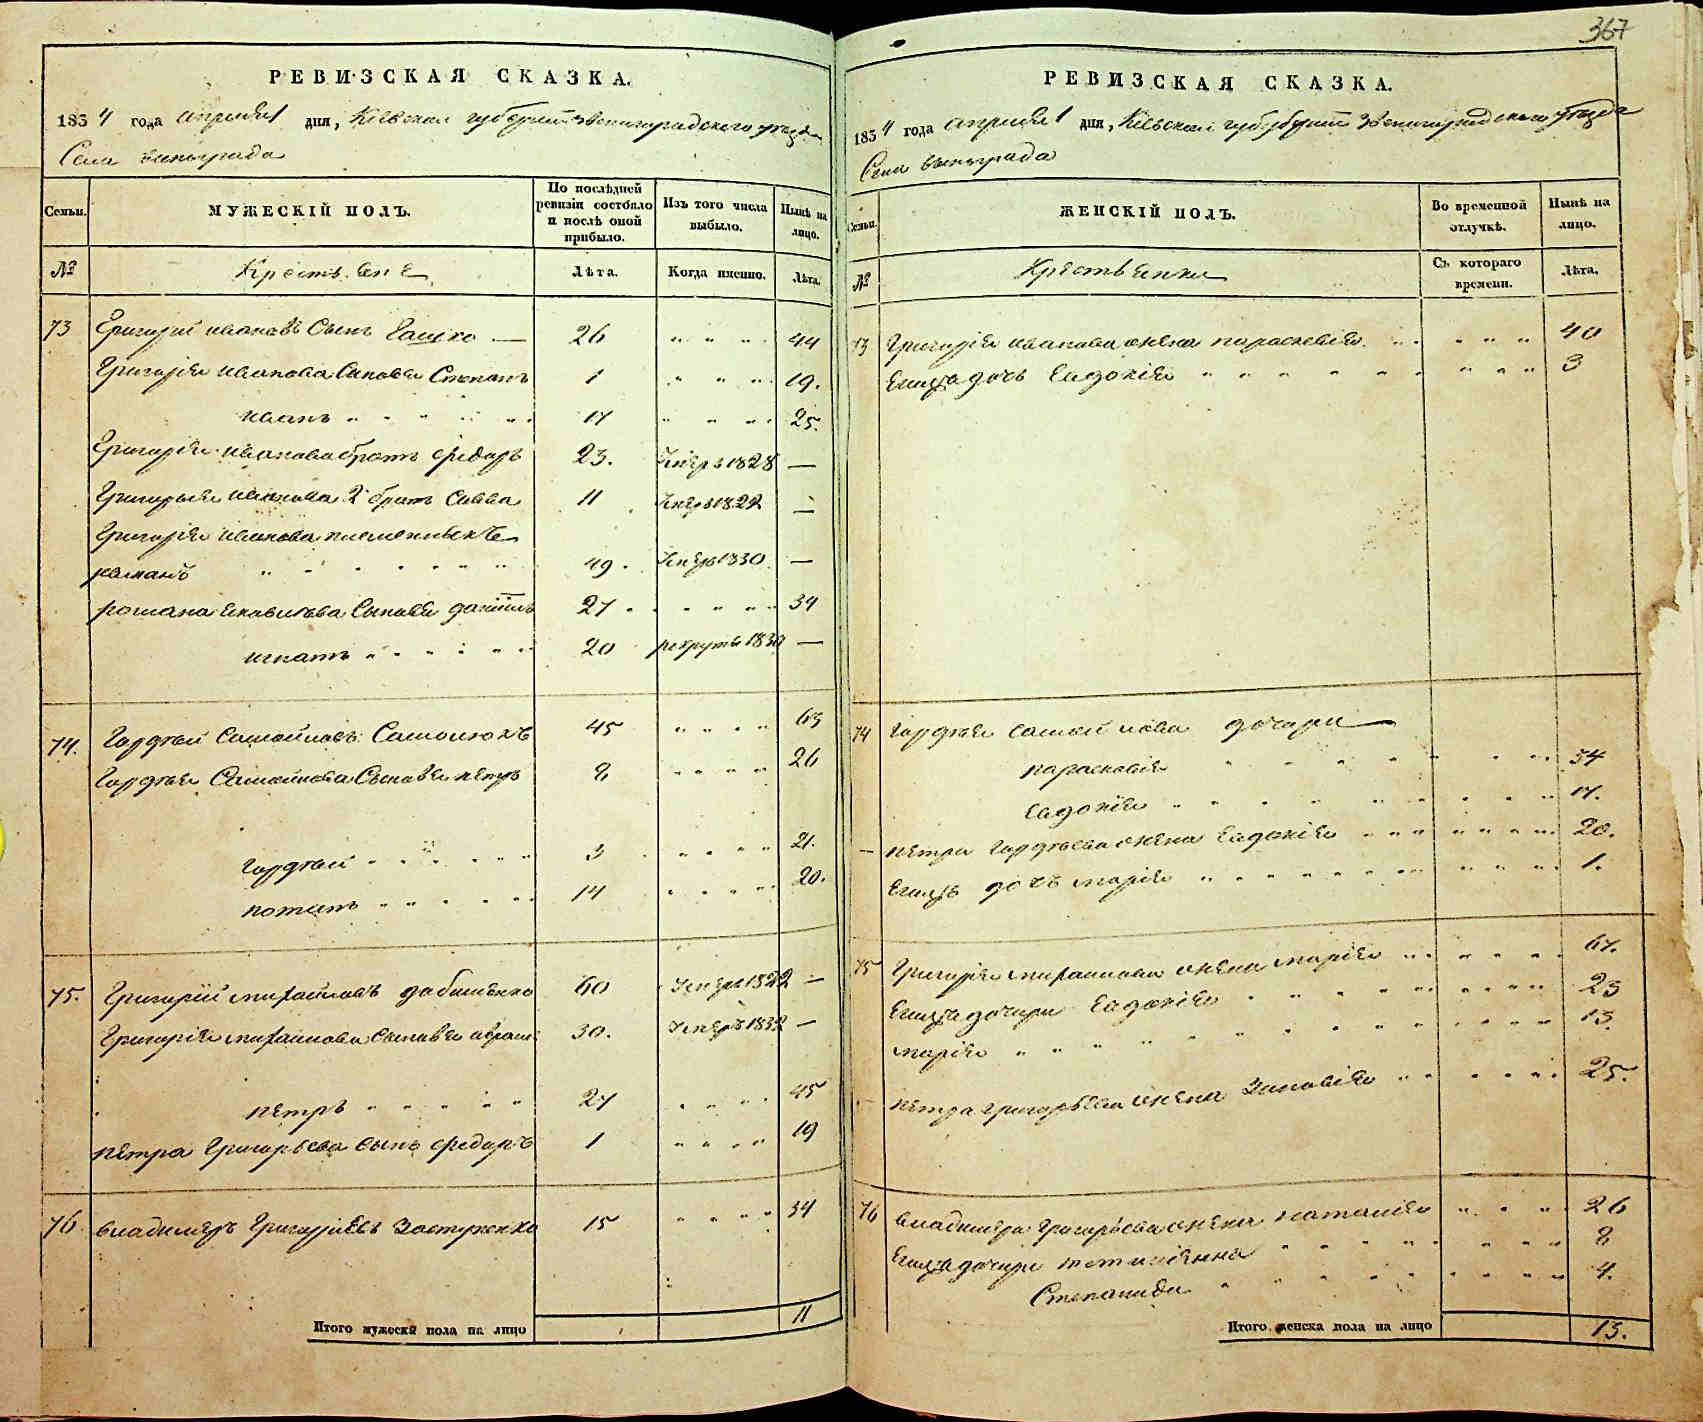 367
РЕВИЗСКАЯ СКАЗКА.
1834 года апреля 1 дня, Кіевской губерніи Звенигородского уезда
Села Винограда
Семьи.
МУЖЕСКІЙ ПОЛЪ.
По послѣдней ревизіи состояло и послѣ оной прибыло.
Изъ того числа выбыло.
Нынѣ на лицо.
№
Крестьяне
Лѣта.
Когда именно.
Лѣта.
73 Григорій Ивановъ Сынъ 26 " " " " 44
Григорія Иванова Сыновья Степанъ 1 " " " " 19.
Иванъ " " " " " " 17 " " " " 25.
Григорія Иванова братъ Федоръ 23. 1828 —
Григорія Иванова 2 братъ Савва 11 1822 —
Григорія Иванова
Романъ " " " " " " " 49. 1830 —
Романа Сыновья Даніилъ 27 " " " " 34
Игнатъ " " " " " " 20 рекрутъ 1830 —
74. Гордѣй Самойловъ 45 " " " " 63
Гордѣя Самойлова Сыновья Петръ 8 " " " " 26
Гордѣй " " " " " " 3 " " " " 21.
Потапъ " " " " " " 14 " " " " 20.
75. Григорій Михайловъ 60 1822 —
Григорія Михайлова Сыновья 30. 1832 —
Петръ " " " " " " 27 " " " " 45
Петра Григорьева сынъ Федоръ 1 " " " " 19
76 Владимеръ Григорьевъ 15 " " " " 34
Итого мужеска пола на лицо 11
РЕВИЗСКАЯ СКАЗКА.
1834 года апреля 1 дня, Кіевской губерніи Звенигородского уезда
Села Винограда
Семьи.
ЖЕНСКІЙ ПОЛЪ.
Во временной отлучкѣ.
Нынѣ на лицо.
№
Крестьянки
Съ котораго времени.
Лѣта.
73 Григорія Иванова жена Параскевія " " " " " 40
Его дочь Евдокія " " " " " " " " " 3
74 Гордѣя Самойлова дочери
Параскевія " " " " " " " " 34
Евдокія " " " " " " " " " 17.
Петра Гордѣева жена Евдокія " " " " " " " 20.
Его дочь Марія " " " " " " " " " 1.
75 Григорія Михайлова жена Марія " " " " " " 67.
Его дочери Евдокія " " " " " " " " 23
Марія " " " " " " " " " " 13.
Петра Григорьева жена Зиновія " " " " " 25.
76 Владимера Григорьева жена Наталія " " " " 26
Его дочери " " " " " " " " 8
Степанида " " " " " " " " " 4.
Итого женска пола на лицо 13.